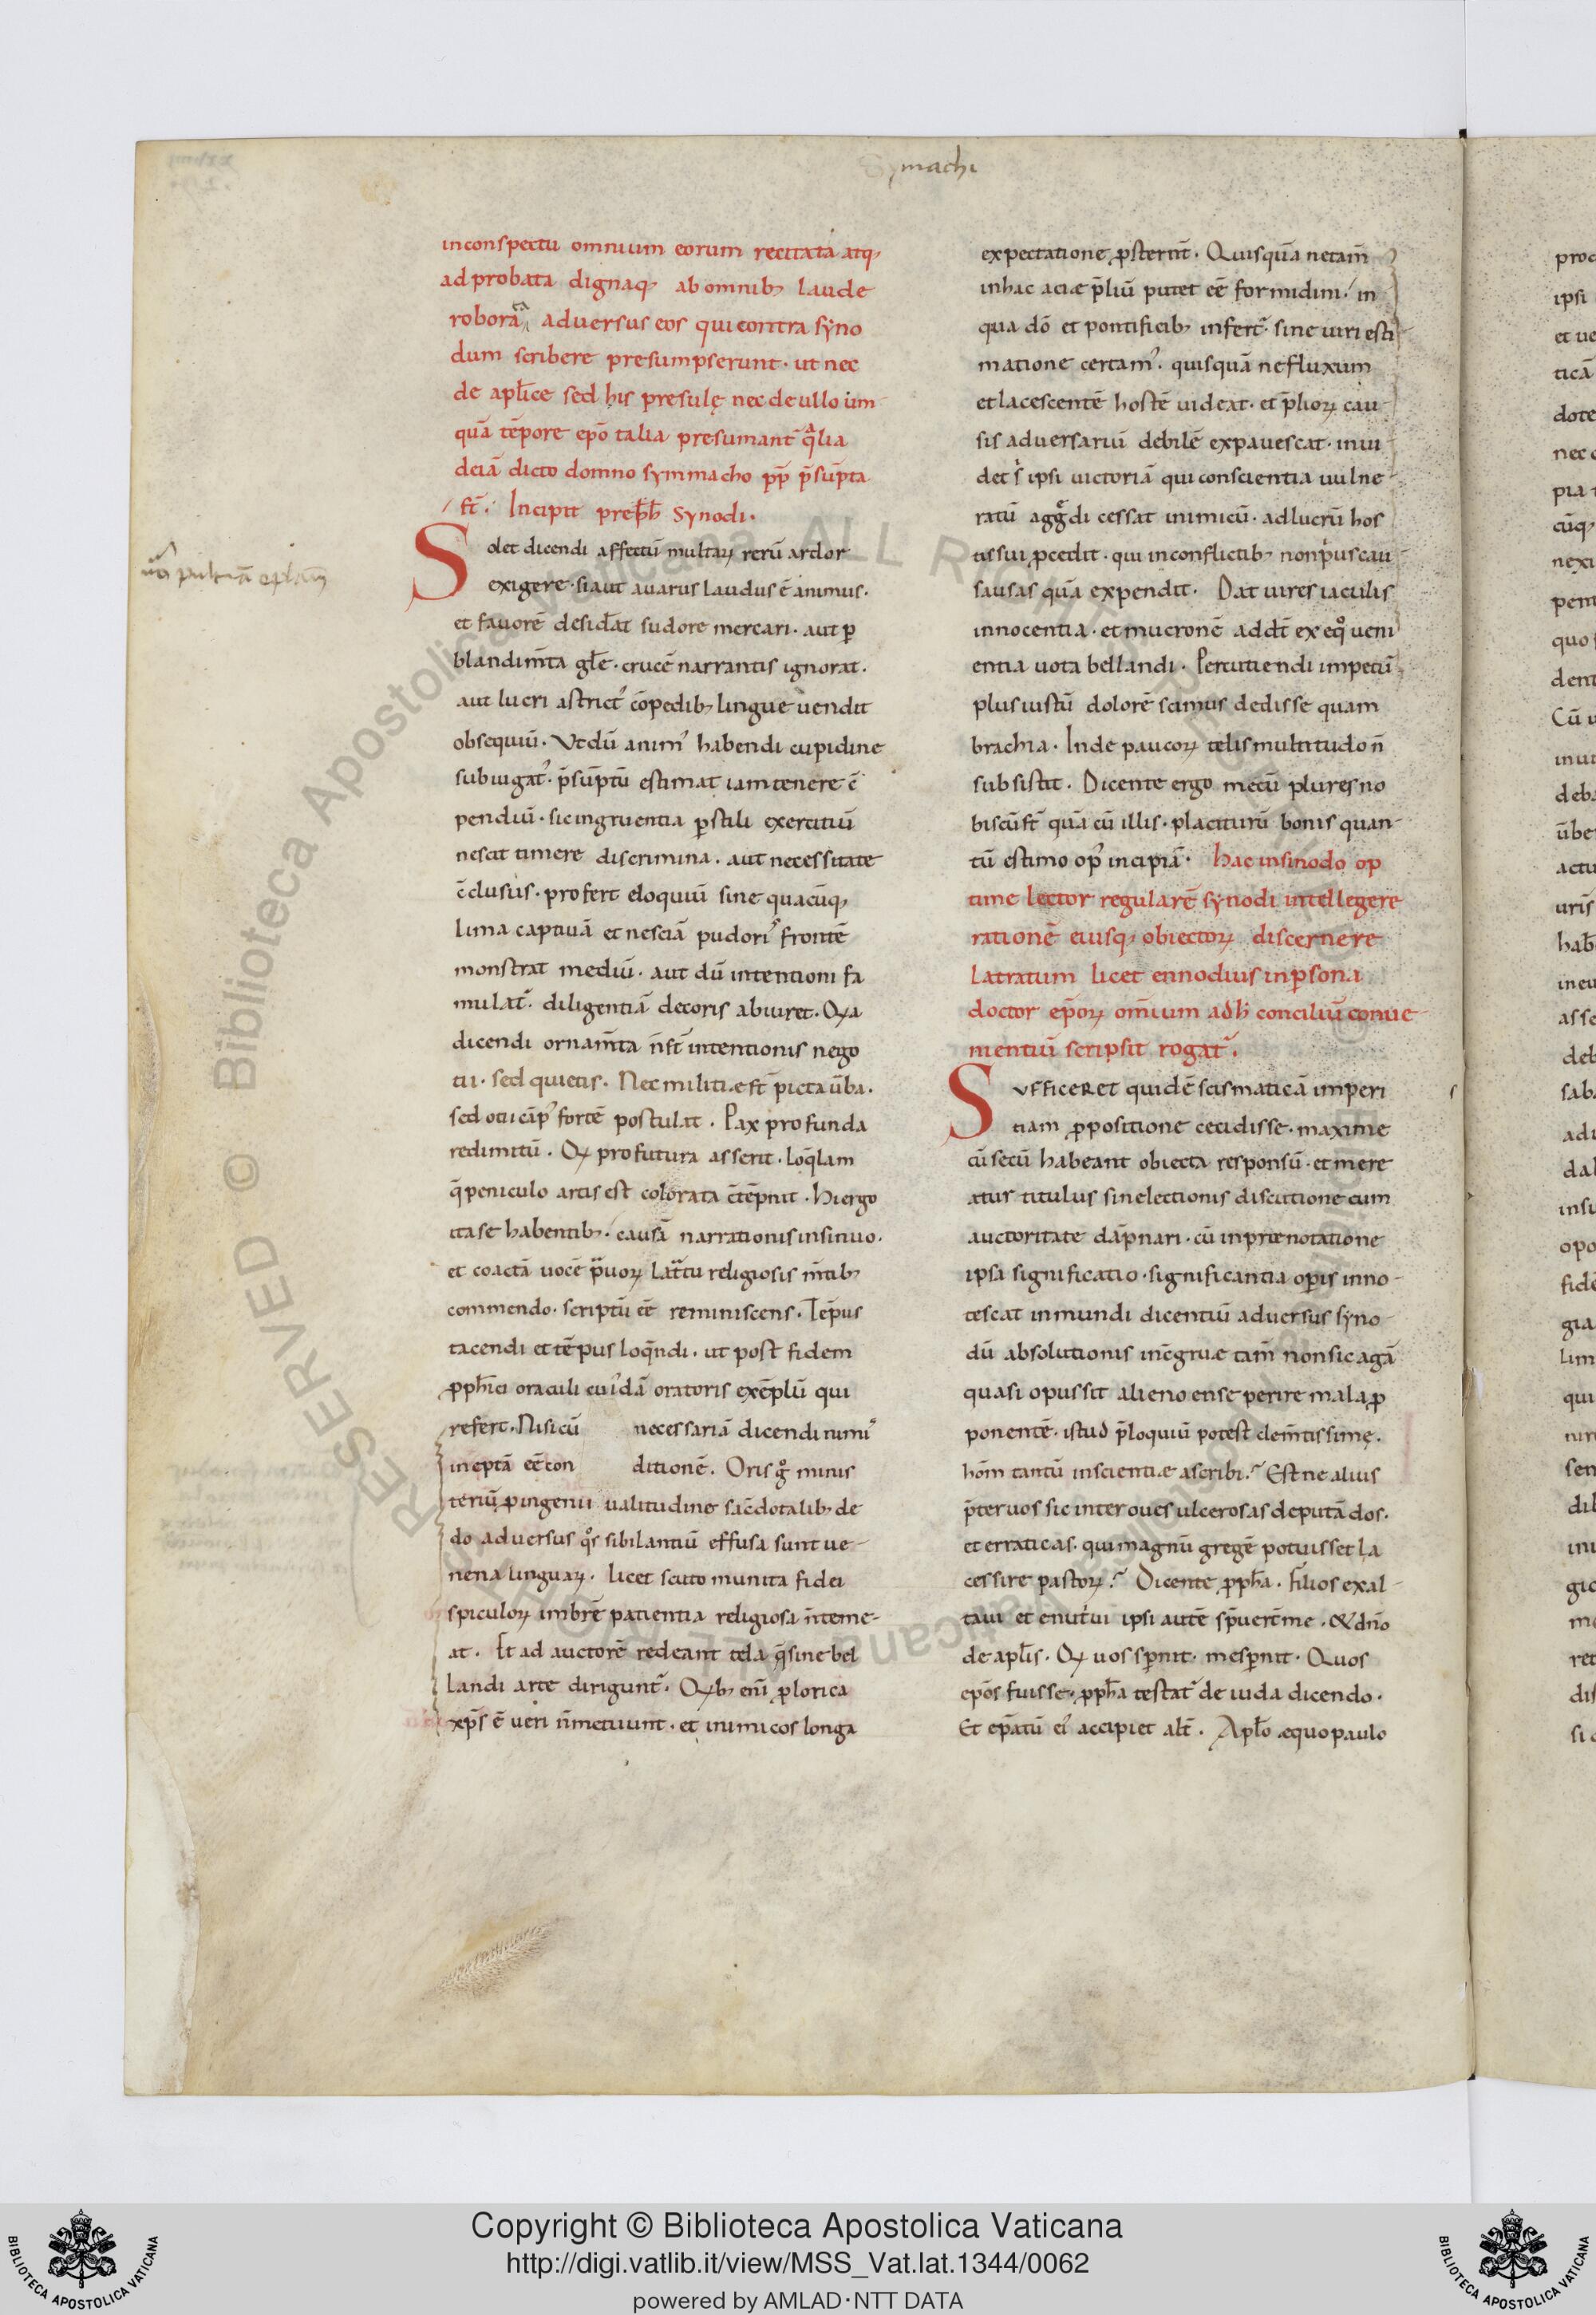 Symachi
inconspectu omnium eorum recitata atq;
ad probata dignaq; ab omnib; laude
roborata adversus eos qui contra syno
dum scribere presumpserunt · ut nec
de apl̄ice sed his presulę nec de ullo um-
quā tēpore ep̄o talia presumant qͣlia
deiā dicto domno symmacho pp̄ p̄sūpta
st̄. Incipit preph̄b synodi.
Solet dicendi affectū multaꝝ rerū ardor
exigere · si aut avarus laudus ē animus.
et favorē desid̄at sudore mercari · aut ꝑ
blandim̄ta gl̄e · crucē narrantis ignorat.
aut lucri astrict᾽ cōpedib; lingue vendit
obsequiū · Ut dū anim᾽ habendi cupidine
subiugat᾽ · p̄sūptū estimat iam tenere c̄
pendiū · sic ingruentia ꝑ stili exercitiū
nescit timere discrimina · aut necessitate
c̄clusus · profert eloquiū sine quacūq;
lima captivā et nesciā pudori᾽ frontē
monstrat mediū · aut dū intentioni fa
mulat᾽ · diligentiā decoris abiuret · Qꝫa
dicendi ornam̄ta n̄ st̄ intentionis nego
tii · sed quietis · Nec militiæ st̄ picta ūba.
sed otii cāp᾽ fortē postulat · Pax profunda
redimitū · Qꝫ profutura asserit · loq̄lam
q̄ peniculo artis est colorata c̄tēpnit · Hi ergo
ita se habentib; · causā narrationis insinuo.
et coactā vocē pͣvoꝝ latͣtu religiosis m̄tib;
commendo · scriptū eē reminiscens · Tēpus
tacendi et tēpus loq̄ndi · ut post fidem
ꝓph̄ici oraculi cui᾽dā oratoris exēplū qui
refert · Nisi cū necessariā dicendi nimi᾽
ineptā eē con ditionē. Oris gͦ minis
teriū ꝓ ingenii valitudine sac̄dotalib; de
do adversus qͦs sibilantiū effusa sunt ve-
nena linguaꝝ · licet scuto munita fidei
spiculoꝝ imbrē patientia religiosa n̄ teme-
at · Et ad auctorē redeant tela q̄ sine bel
landi arte dirigunt᾽ · Qꝫb; eni᾽ ꝓ lorica
xp̄s ē veri n̄ metuunt · et inimicos longa
expectatione ꝓsternt̄ · Quisquā ne tam̄
in hac acie p̄liū putet eē formidini · in
qua dō et pontificib; infert᾽ · sine viri esti
matione certam᾽ · quisquā ne fluxum
et lacescentē hostē videat · et p̄lioꝝ cau
sis adversariū debilē expavescat · invi
det sͥ ipsi victoriā qui conscientia vulne
ratū aggͤdi cessat inimicū · ad lucrū hos
tis sui ꝓcedit · qui in conflictib; non pͥus cau
sas uas quā expendit · Dat vires iaculis
innocentia · et mucronē addt̄ ex eqͦ veni
entia vota bellandi · Percutiendi impetū
plus iustū dolorē scimus dedisse quam
brachia · Inde paucoꝝ telis multitudo n̄
subsistit · Dicente ergo mecū plures no
biscū st̄ quā cū illis · placiturū bonis quan-
tū estimo op᾽ incipiā · Hac in sinodo op
time lector regularē synodi intellegere
rationē eiusq; obiectoꝝ discernere
latratum licet ennodius in ꝑsona
doctor ep̄oꝝ om̄ium ad h̄ conciliū convє-
nientiū scripsit rogat᾽.
Sufficeret quidē scismaticā imperi
tiam ꝓpositione cecidisse · maxime
cū secū habeant obiecta responsū · et mere
atur titulus sin electionis discutione cum
auctoritate dāpnari · cū in prenotatione
ipsa significatio · significantia opis inno-
tescat in mundi dicentiū adversus syno-
dū absolutionis incgruæ tam̄ non sic agā
quasi opus sit alieno ense perire mala ꝓ
ponentē · istud p̄loquiū potest clem̄tissimę.
hom̄ tantū inscientiæ ascribi? Est ne alius
p̄ter vos sic inter oves ulcerosas deputādos.
et erraticas · qui magnū gregē potuisset la
cessire pastorꝝ? Dicente ꝓph̄a · filios exal-
tavi et enutͥvi ipsi autē sp̄ver̄t me · & dn̄o
de apl̄is · Qꝫ vos spnit · me spnit · Quos
ep̄os fuisse · ꝓph̄a testat᾽ de iuda dicendo.
Et ep̄atū ei᾽ accipiet alt̄ · Apl̄o æquo paulo
Copyright © Biblioteca Apostolica Vaticana
http://digi.vatlib.it/view/MSS_Vat.lat.1344/0062
powered by AMLAD·NTT DATA